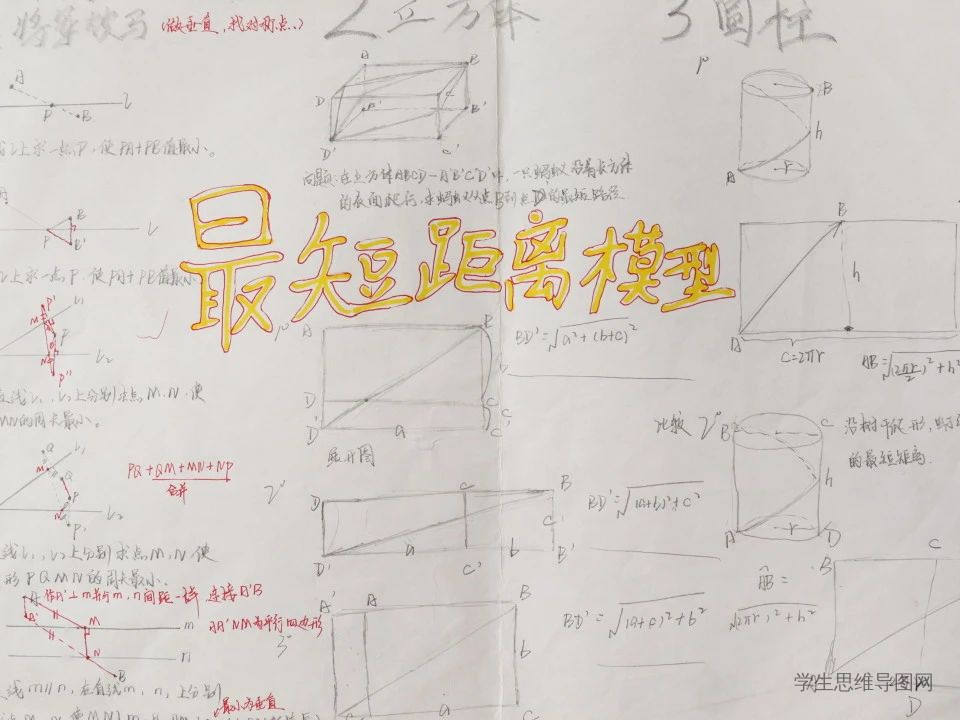 将军饮马 (做垂直,找对称点..)
2 立方体
3 圆柱
A
P
B
l
上求一点P,使PA+PB值最小。
A
B
P
B'
l
上求一点P,使PA+PB值最小
P'
l₁
M
P
N
l₂
P''
直线l₁,l₂上分别求点M,N,使
MN的周长最小。
Q'
l₁
M
Q
P
N
l₂
P'
PQ+QM+MN+NP
合并
直线l₁,l₂上分别求点M,N,使
形PQMN的周长最小。
连接A'B
AA'NM为平行四边形
A
A'
M
m
N
n
B
直线m∥n,在直线m,n,上分别
最小为垂直
A
B
D
C
A'
B'
D'
C'
问题:在立方体ABCD-A'B'C'D'中,一只蚂蚁沿着长方体
的表面爬行,求蚂蚁从点B到点D'的最短路径
最短距离模型
1°
A
B
D
C
D'
a
C'
BD'=√a²+(b+c)²
展开图
2°
D
C
B
D'
a
C'
b
B'
BD'=√(a+b)²+c²
3°
A'
A
B
b
BD'=√(a+c)²+b²
1°
B
h
A
r
B
h
A
C=2πr
AB=√(2πr/2)²+h²
比较
2°
B
C
h
A
r
D
沿树干爬形,
的最短距离
B
C
AB=
√(2πr)²+h²
D
学生思维导图网